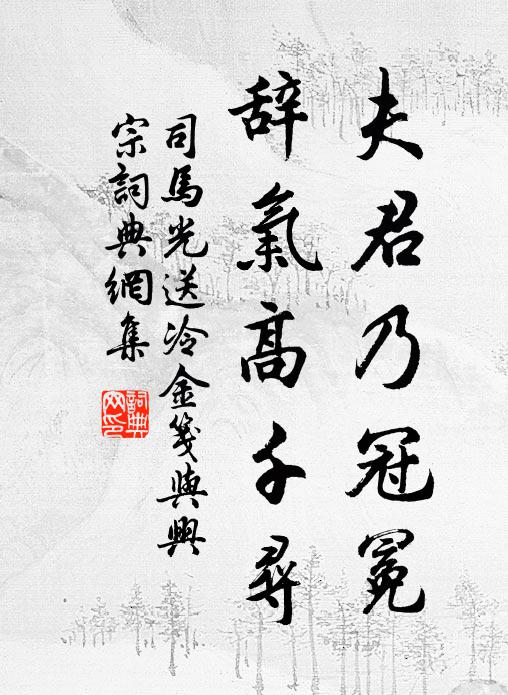 夫君乃冠冕
辞氣高千尋
司馬光送冷金箋與興
宗詞典網集
詞典
网印